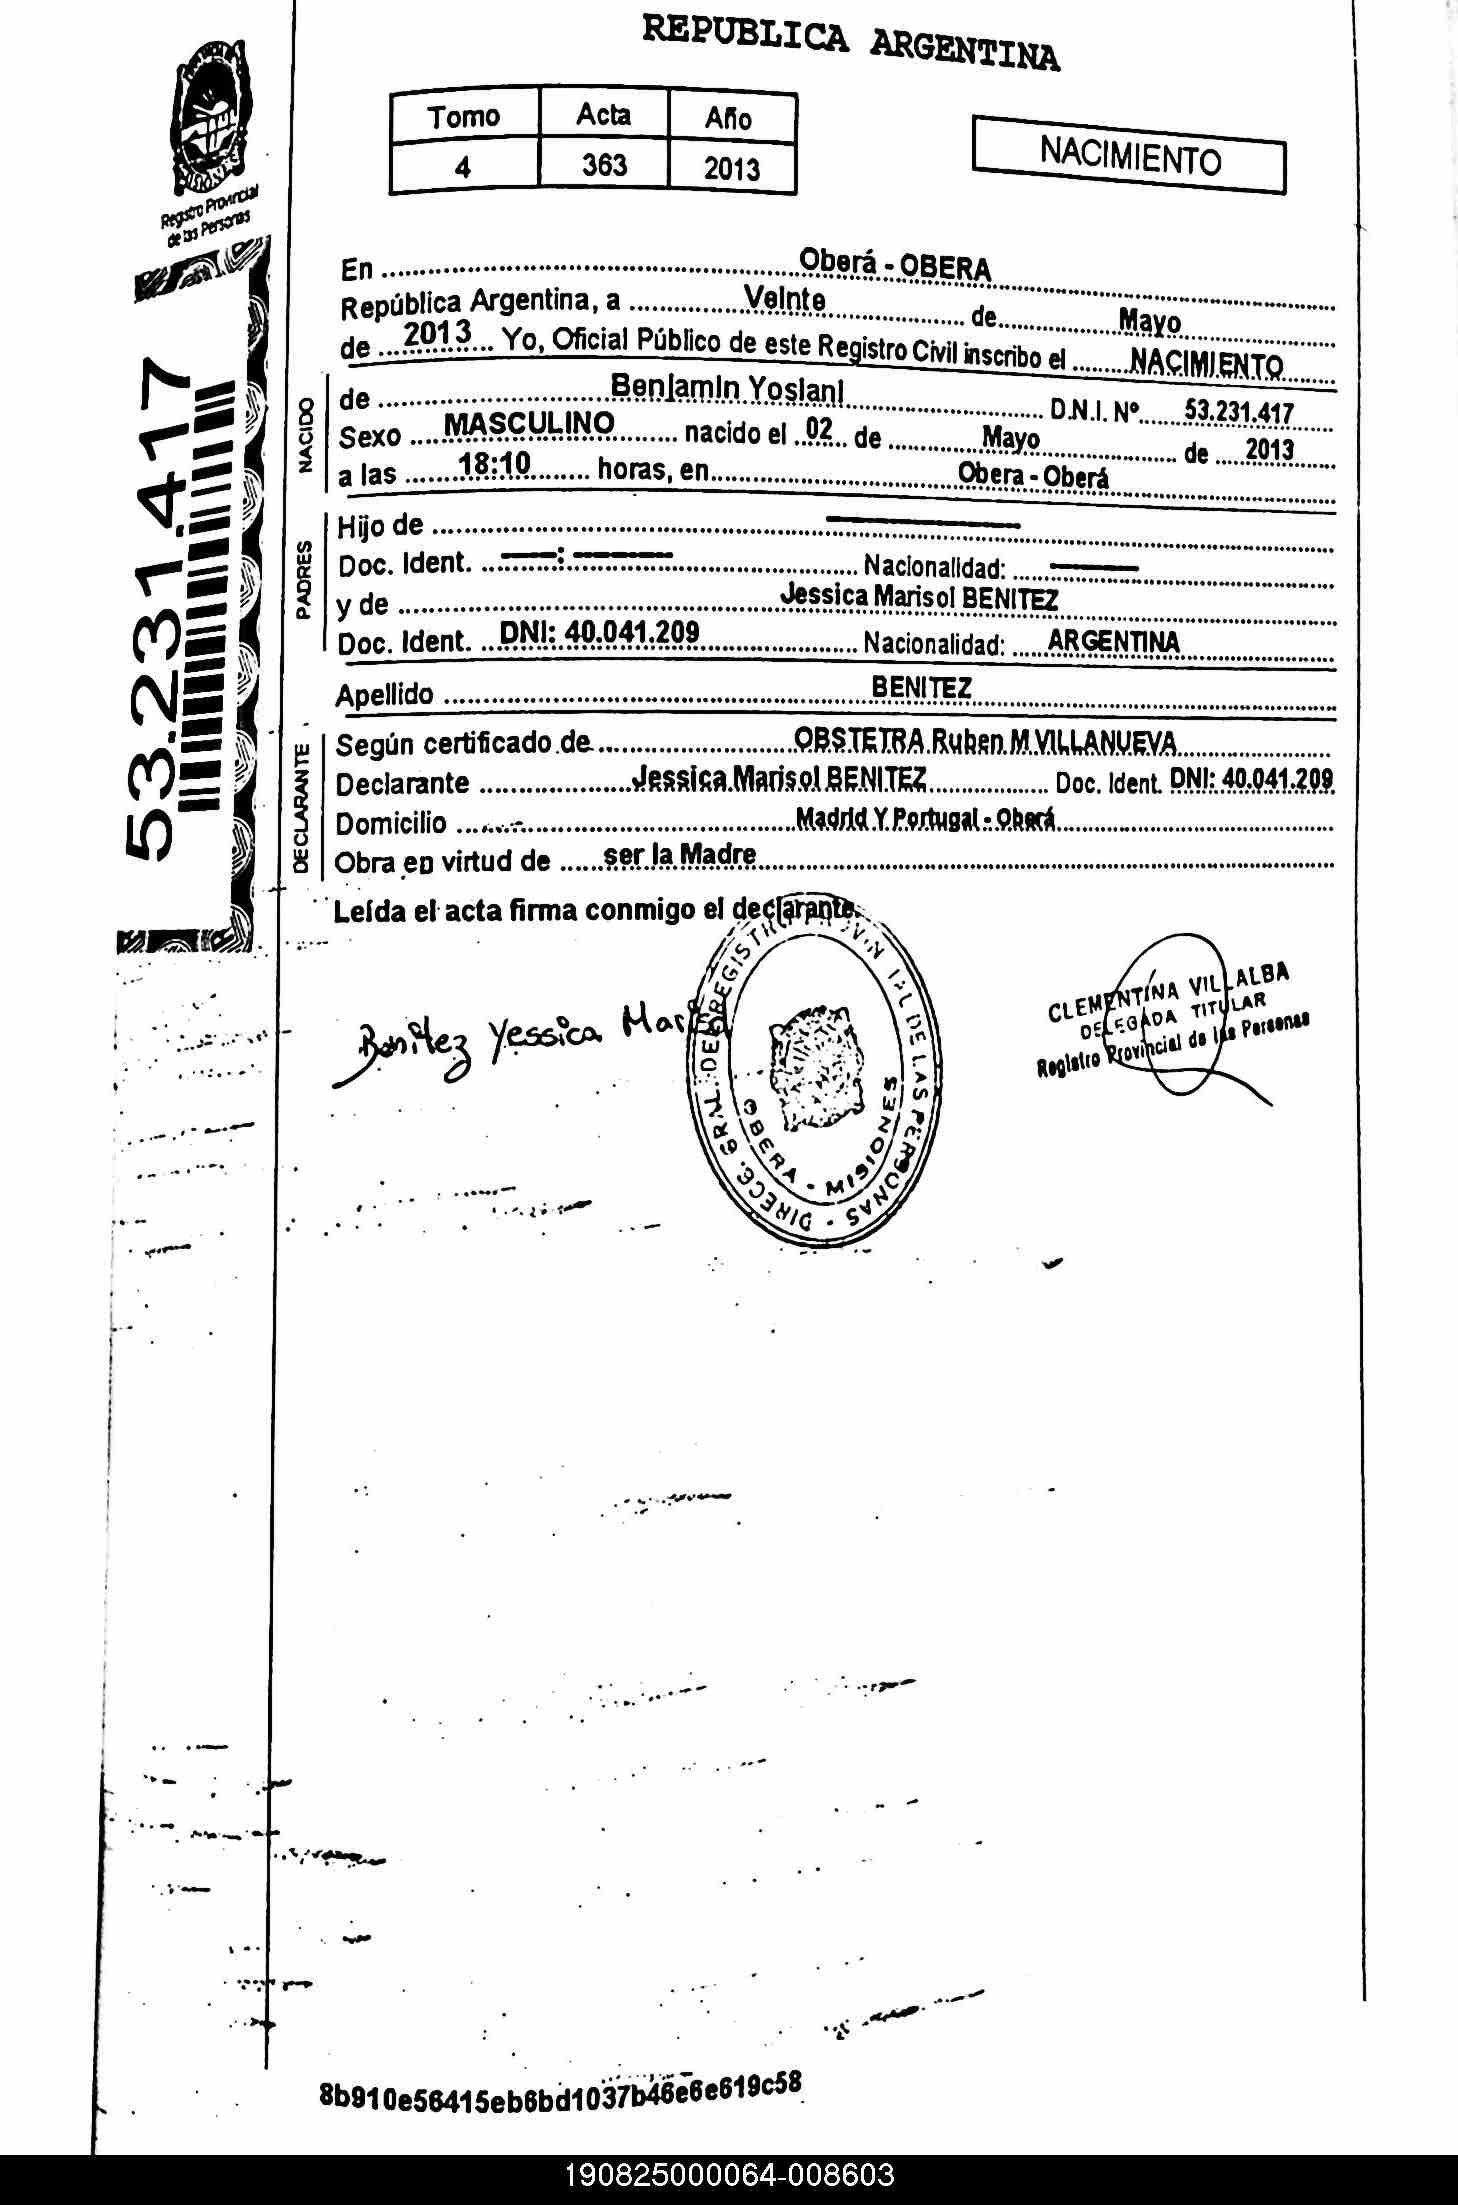 REPUBLICA ARGENTINA
Registro Provincial
de las Personas
Tomo Acta Año
4 363 2013
NACIMIENTO
53.231.417
En Oberá - OBERA
República Argentina, a Veinte de Mayo
de 2013 Yo, Oficial Público de este Registro Civil inscribo el NACIMIENTO
NACIDO
de Benjamin Yosianl D.N.I. Nº 53.231.417
Sexo MASCULINO nacido el 02 de Mayo de 2013
a las 18:10 horas, en Obera - Oberá
PADRES
Hijo de
Doc. Ident. : Nacionalidad:
y de Jessica Marisol BENITEZ
Doc. Ident. DNI: 40.041.209 Nacionalidad: ARGENTINA
Apellido BENITEZ
DECLARANTE
Según certificado de OBSTETRA Ruben M VILLANUEVA
Declarante Jessica Marisol BENITEZ Doc. Ident. DNI: 40.041.209
Domicilio Madrid Y Portugal - Oberá
Obra en virtud de ser la Madre
Leída el acta firma conmigo el declarante.
Benitez Yessica
DIRECC. GRAL. DEL REGISTRO PROVINCIAL DE LAS PERSONAS
OBERA - MISIONES
CLEMENTINA VILLALBA
DELEGADA TITULAR
Registro Provincial de las Personas
8b910e56415eb6bd1037b46e6e619c58
190825000064-008603